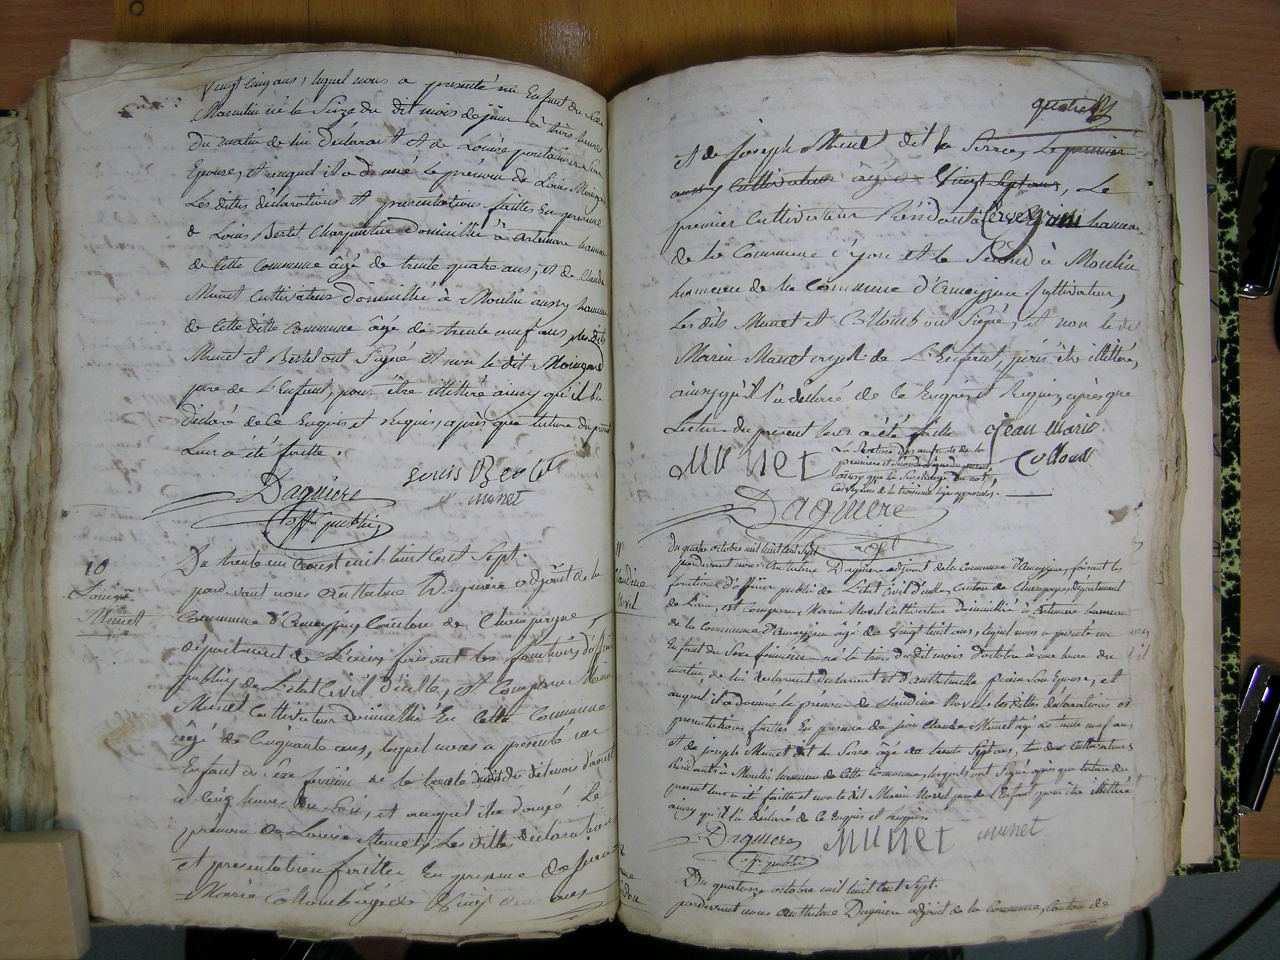 vingt cinq ans, lequel nous a presenté un Enfant du Sexe
Masculin né le Seize du dit mois de juin à trois heures
du matin de lui Declarant et de Louise
Epouse, et auquel il a donné le prénom de Louis
Les dites déclarations et présentations faites en presence
de Louis Bertet Charpentier domicilié à Artemare hameau
de Cette Commune âgé de trente quatre ans, et de Claude
Munet Cultivateur Domicilié à Moulin aussy hameau
de Cette ditte Commune âgé de trente neuf ans, les dits
Munet et Bertet ont Signé et non le dit
pere de L'Enfant, pour être illitéré ainsy qu'il l'a
déclaré de Ce Enquis et requis, après que lecture du present
Leur a été faitte.
Louis Bertet
Daguiere munet
off. public
10
Louise
Munet
Du trente un aoust mil huit Cent Sept.
pardevant nous Anthelme Daguiere adjoint de la
Commune d'Ameyzieu Canton de Champagne,
département de L'ain, faisant les fonctions d'officier
public de L'état Civil d'icelle, est Comparu Marin
Munet Cultivateur Domicilié En Cette Commune
âgé de Cinquante ans, lequel nous a presenté un
Enfant du Sexe féminin né le trente du dit mois d'aoust
à Cinq heures du Soir, et auquel il a donné Le
prénom de Louise Munet, Les dittes déclaration
et presentation faittes En presence de Jean
Marie Colloud âgé de Vingt ans
quatre
et de Joseph Munet dit la Serra, le premier
aussy Cultivateur âgé de Vingt Sept ans, Le
premier Cultivateur Résidant à Cerveyrieu hameau
de la Commune d'yon et le Second à Moulin
hameau de la Commune d'Ameyzieu Cultivateur,
Les dits Munet et Colloud ont Signé, et non le dit
Marin Munet père de L'Enfant, pour être illitéré,
ainsy qu'il l'a déclaré de Ce Enquis et Requis, après que
Lecture du present leur a été faitte Jean Marie
Munet Colloud
Daguiere
off.
11
Claudine
Morel
Du quatre octobre mil huit Cent Sept
pardevant nous Anthelme Daguiere adjoint de la Commune d'Ameyzieu, faisant les
fonctions d'officier public de L'état Civil d'icelle, Canton de Champagne, département
de L'ain, est Comparu Marin Morel Cultivateur Domicilié à Artemare hameau
de la Commune d'Ameyzieu âgé de Vingt huit ans, lequel nous a presenté un
Enfant du Sexe féminin né le trois du dit mois d'octobre à une heure du
matin, de lui declarant et d'Anthelmette Son Epouse, et
auquel il a donné le prénom de Claudine Morel. les dittes déclarations et
presentations faittes En presence de jean Claude Munet âgé de trente neuf ans,
et de joseph Munet dit la Serra âgé de trente Sept ans, tous deux Cultivateurs
Résidants à Moulin hameau de Cette Commune, lesquels ont Signé après que lecture du
present leur a été faitte et non le dit Marin Morel pere de L'Enfant pour être illitéré
ainsy qu'il l'a déclaré de Ce Enquis et requis.
Daguiere Munet munet
off. public
Du quatorze octobre mil huit Cent Sept.
pardevant nous Anthelme Daguiere adjoint de la Commune, Canton de